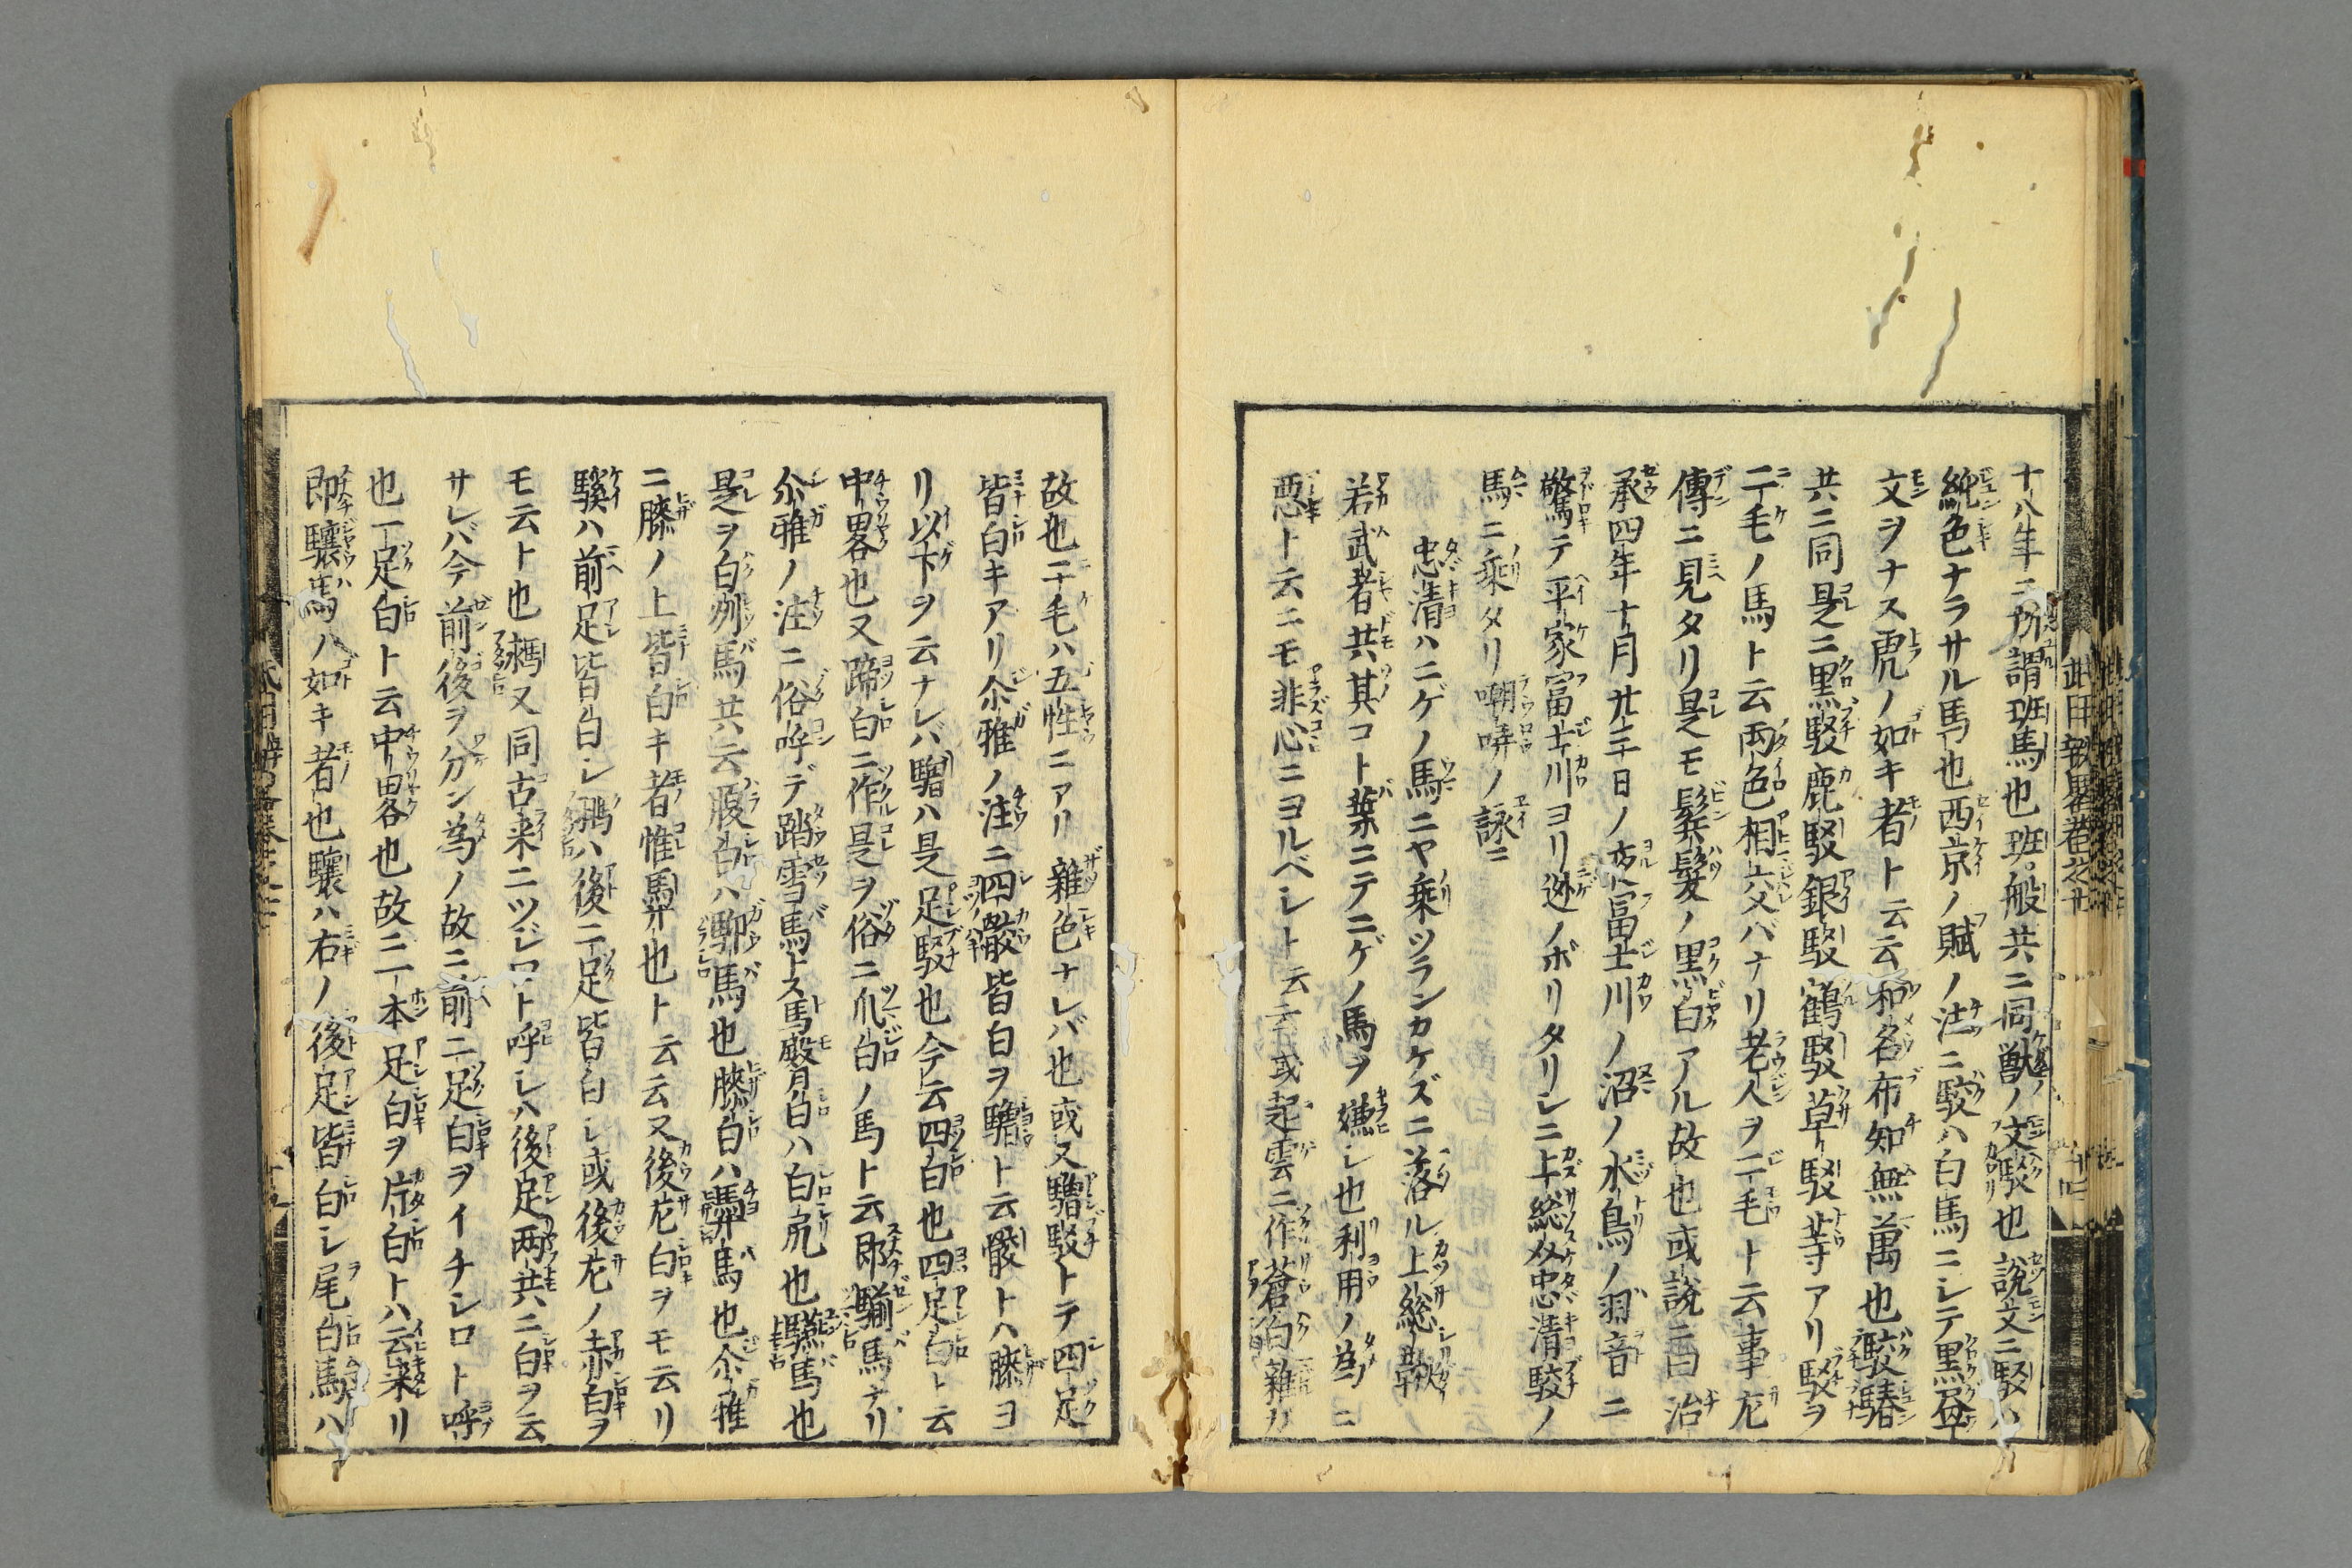 十八年ニ所謂班馬也班般共ニ同獣ノ文駁也説文ニ駁ハ
純色ナラサル馬也西京ノ賦ノ注ニ駁ハ白馬ニシテ黒
文ヲナス虎ノ如キ者ト云云和名布知無萬也
共ニ同是ニ黒駁鹿駁銀駁鶴駁草駁等アリ駁ヲ
二毛ノ馬ト云両色相交バナリ老人ヲ二毛ト云事左
傳ニ見タリ是モ鬂髪ノ黒白アル故也或説ニ曰治
承四年十月廿三日ノ夜富士川ノ沼ノ水鳥ノ羽音ニ
驚テ平家富士川ヨリ迯ノボリタリシニ上総忠清駁ノ
馬ニ乘タリ嘲哢ノ詠ニ
忠清ハニゲノ馬ニヤ乘ツランカケズニ落ル上総鞦
若武者共其コト葉ニテニゲノ馬ヲ嫌シ也利用ノ為ニ
悪ト云ニモ非心ニヨルベシト云云或起雲ニ作蒼白雜カ
故也二毛ハ五性ニアリ雜色ナレバ也或又駁トテ四足
皆白キアリ尒雅ノ注ニ四骹皆白ヲ驓ト云骹トハ膝ヨ
リ以下ヲ云ナレバ驓ハ是足駁也今云四白也四足白ト云
中畧也又蹄白ニ作是ヲ俗ニ爪白ノ馬ト云即騚馬ナリ
尒雅ノ注ニ俗呼デ踏雪馬トス馬臀白ハ白尻也驠馬也
是ヲ白州馬共云腹白ハ馬也膝白ハ馬也尒雅
ニ膝ノ上皆白キ者惟馵也ト云云又後左白ヲモ云リ
騱ハ前足皆白シ翑ハ後二足皆白シ或後左ノ赤白ヲ
モ云ト也又同古来ニツジロト呼シハ後足両共ニ白ヲ云
サレバ今前後ヲ分ン為ノ故ニ前二足白ヲイチシロト呼
也一足白ト云中畧也故ニ一本足白ヲ片白トハ云来リ
即驤馬ハ如キ者也驤ハ右ノ後足皆白シ尾白馬ハ